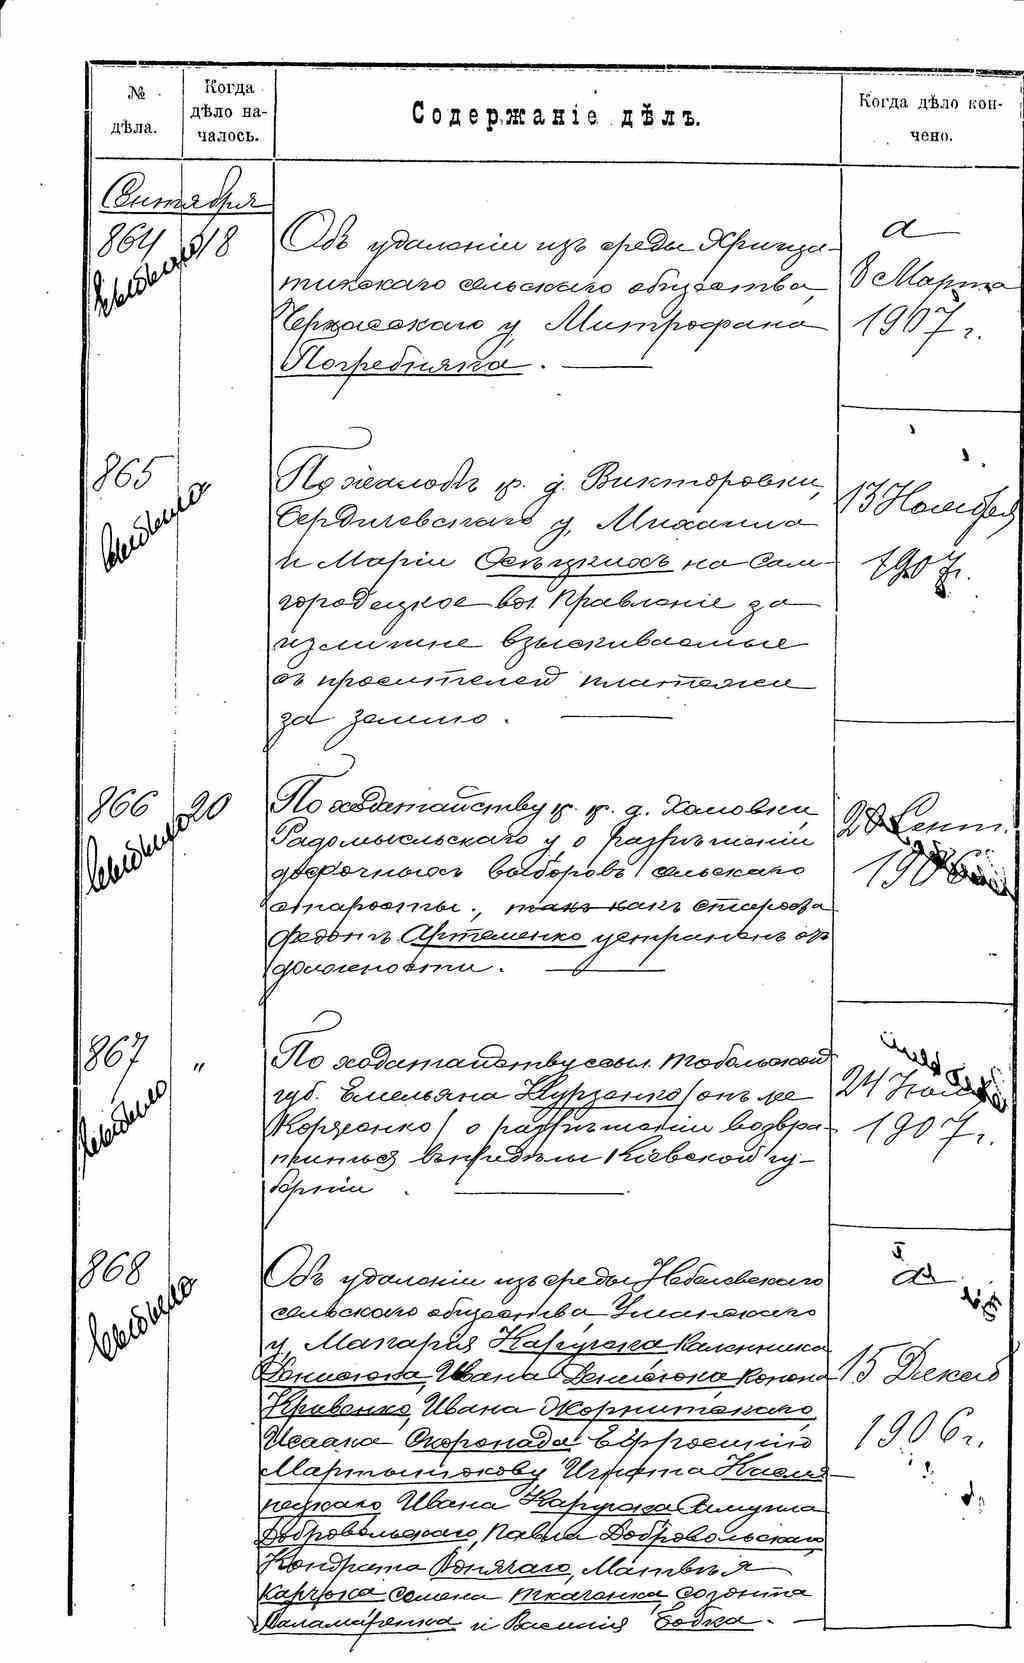 № дѣла.
Когда дѣло началось.
Содержаніе дѣлъ.
Когда дѣло кончено.
Сентября
864 18
Объ удаленіи изъ среды
сельскаго общества,
Черкасскаго у, Митрофана
Погребняка.
8 Марта
1907 г.
865
По жалобѣ кр. д. Викторовки,
Бердичевскаго у, Михаила
и Маріи на Сам-
городецкое вол. Правленіе за
излишне взыскиваемые
съ просителей платежи
за землю.
13 Ноября
1907 г.
866 20
По ходатайству кр. кр. д.
Радомысльскаго у, о разрѣшеніи
досрочныхъ выборовъ сельскаго
старосты, такъ какъ староста
Федонъ Артеменко устраненъ отъ
должности.
Сент.
1906
867 „
По ходатайству ссыл. Тобольской
губ. Емельяна Курзенко /онъ же
Корженко/ о разрѣшеніи возвра-
титься въ предѣлы Кіевской гу-
берніи.
24
1907 г.
868
Объ удаленіи изъ среды Небелевскаго
сельскаго общества, Уманскаго
у, Макарія Карчука Каленика
Денисюка, Ивана Денисюка Конона
Кравенко, Ивана
Исаака Скоропада Евфросинію
Мартынюкову Игната
Ивана Карчука Самуила
Добровольскаго, Павла Добровольскаго
Кондрата Матвѣя
Карчука Семена Ткаченка, Созонта
Паламаренка и Василія Бобка.
15 Декаб
1906 г.